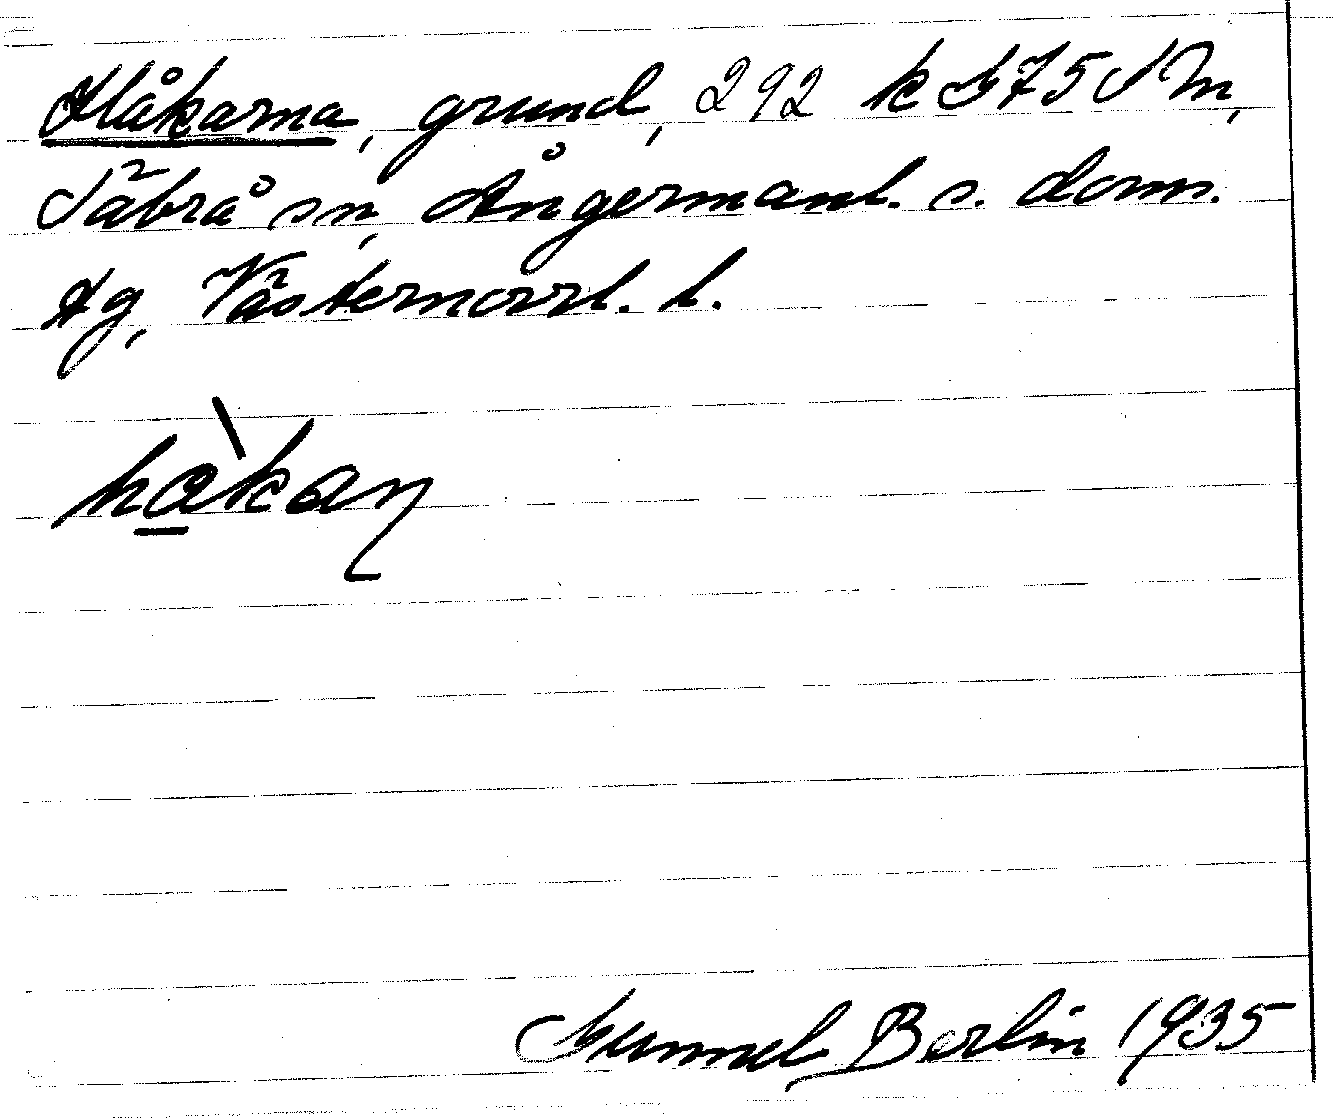 Håkarna, grund, 292 k I 75 S M,
Säbrå sn, Ångermanl. s. doms.
tg, Västernorrl. l.
hàkaɳ
Gunnel Berlin 1935